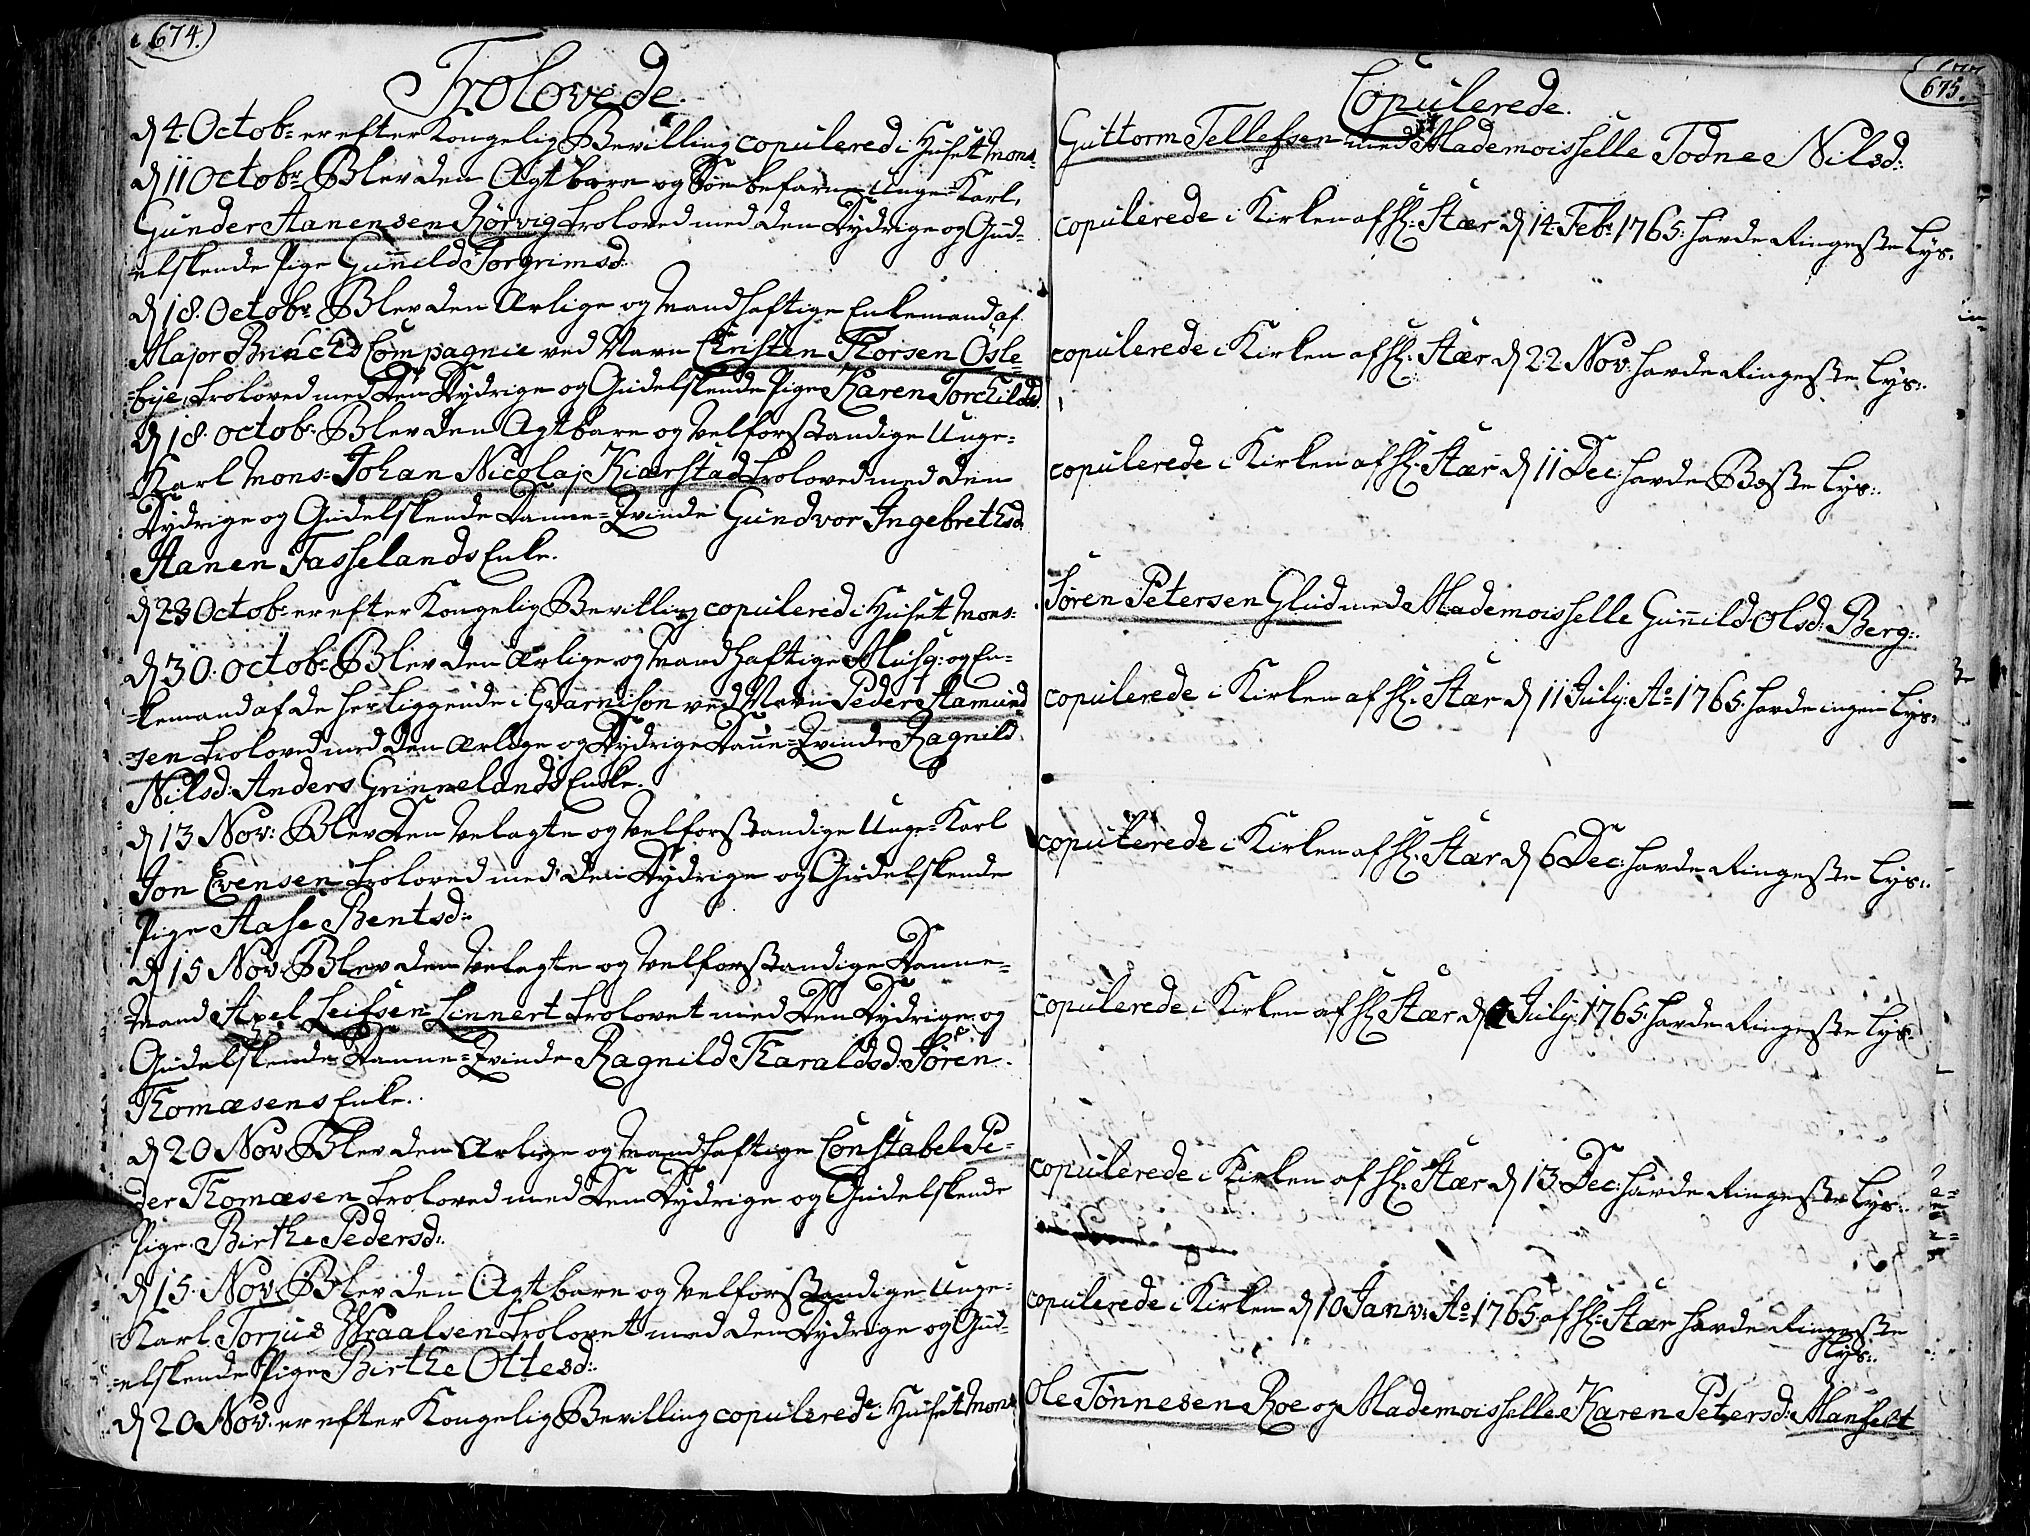 674.)
Trolovede.
d 4 Octob: er efter Kongelig Bevilling copulered i Huset Mons:
d 11 Octobr Blev den Agtbare og Søebefarne Unge-Karl,
Gunder Aanensen Rørvig troloved med den Dydrige og Gud-
elskende Pige Gunnild Torgrimsd:
d 18. Octobr Blev den Ærlige og Mandhaftige Enkemand af
Major Brinchs Compagnie ved Navn Christen Thorsen Osle-
bye, troloved med den Dydrige og Gudelskende Pige Karen Torchilds:
d 18. octobr: Blev den Agtbare og Velforstandige Unge-
Karl Mons: Johan Nicolaj Kiærstad troloved med den
Dydrige og Gudelskende Danne-Qvinde Gundvor Ingebrethsd:
Aanen Tasselands Enke.
d 23 Octob: er efter Kongelig Bevilling copulered i Huset Mons:
d 30. octob: Blev den Ærlige og Mandhaftige Musq: og En-
kemand af de her liggende i Gvarnison ved Navn Peder Aamund
sen troloved med den Ærlige og Dydrige Danne-Qvinde Ragnild
Nilsd: Anders Grimmelands Enke.
d 13 Nov: Blev den Velagte og Velforstandige Unge-Karl
Jon Evensen troloved med den Dydrige og Gudelskende
Pige Aase Bentsd:
d 15 Nov. Blev den Velagte og Velforstandige Danne-
Mand Axel Leifsen Linnert trolovet med den Dydrige og
Gudelskende Danne-Qvinde Ragnild Tharaldsd: Søren
Thomæsens Enke.
d 20 Nov Blev den Ærlige og Mandhaftige Constabel Pe-
der Thomæsen troloved med den Dydrige og Gudelskende
Pige Birthe Pedersd:
d 15. Nov. Blev den Agtbare og Velforstandige Unge-
Karl Torjus Wraalsen trolovet med den Dydrige og Gud-
elskende Pige Birthe Ottesd:
d 20 Nov. er efter Kongelig Bevilling copulered i Huset Mons
675.
Copulerede.
Guttorm Tellefsen med Mademoisselle Todne Nilsd:
copulerede i Kirken af Hr: Stær d 14. Feb: 1765: havde Ringeste Lys:
copulerede i Kirken af Hr: Stær d 22 Nov: havde Ringeste Lys:
copulerede i Kirken af Hr: Stær d 11 Dec: havde Beste Lys:
Søren Petersen Glud med Mademoisselle Gunnild Olsd: Berg:
copulerede i Kirken af Hr: Stær d 11 July: Ao 1765. havde ingen Lys:
copulerede i Kirken af Hr: Stær d 6 Dec: havde Ringeste Lys:
copulerede i Kirken af Hr Stær d July: 1765: havde Ringeste Lys
copulerede i Kirken af Hr: Stær d 13 Dec: havde Ringeste Lys:
copulerede i Kirken d 10 Janv: Ao 1765. af Hr: Stær havde Ringeste
Lys:
Ole Tønnesen Roe og Mademoisselle Karen Petersd: Mansfelt